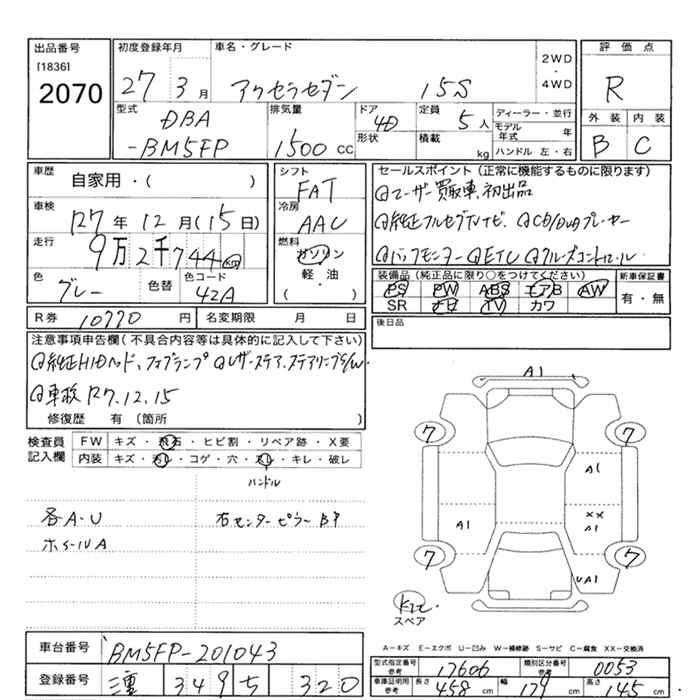 出品番号
[1836]
2070
初度登録年月
27 3 月
車名・グレード
アクセラセダン 15S
2WD
・
4WD
評価点
R
外装 内装
B C
型式
DBA
-BM5FP
排気量
1500 CC
ドア
4D
形状
定員
5人
積載
kg
ディーラー・並行
モデル年式 年
ハンドル 左・右
車歴
自家用・( )
車検
R7年12月(15日)
走行
9万2千744km
色
グレー
色替
色コード
42A
シフト
FAT
冷房
AAC
燃料
ガソリン
軽・油
( ・ )
セールスポイント(正常に機能するものに限ります)
◎ユーザー買取車、初出品
◎純正フルセグTVナビ、◎CD/DVDプレーヤー
◎バックモニター◎ETC◎クルーズコントロール
装備品(純正品に限り○をつけてください)
PS PW ABS エアB AW
SR ナビ TV カワ
新車保証書
有・無
R券 10770 円
名変期限 月 日
後日品
注意事項申告欄(不具合内容等は具体的に記入して下さい)
◎純正HIDヘッド、フォグランプ◎レザーステア、ステアリングS/W
◎車検R7.12.15
修復歴 有 〔箇所 〕
検査員記入欄
FW キズ・飛石・ヒビ割・リペア跡・X要
内装 キズ・汚レ・コゲ・穴・スレ・キレ・破レ
ハンドル
各A-U
ホイールA
右センターピラーBP
A1
7
7
A1
XX
A1
A1
7
7
UA1
キズ
スペア
A－キズ E－エクボ U－凹み W－補修跡 S－サビ C－腐食 XX－交換済
車台番号 BM5FP-201043
登録番号 3495 320
型式指定番号 参考 17606
類別区分番号 参考 0053
車庫証明用 参考 長さ 458 cm 幅 179 cm 高さ 145 cm